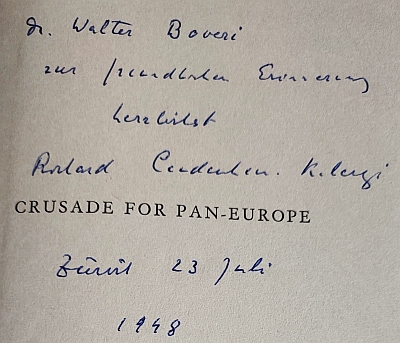 Dr. Walter Boveri
zur freundlichen Erinnerung
herzlichst
Richard Coudenhove-Kalergi
CRUSADE FOR PAN-EUROPE
Zürich 23 Juli
1948